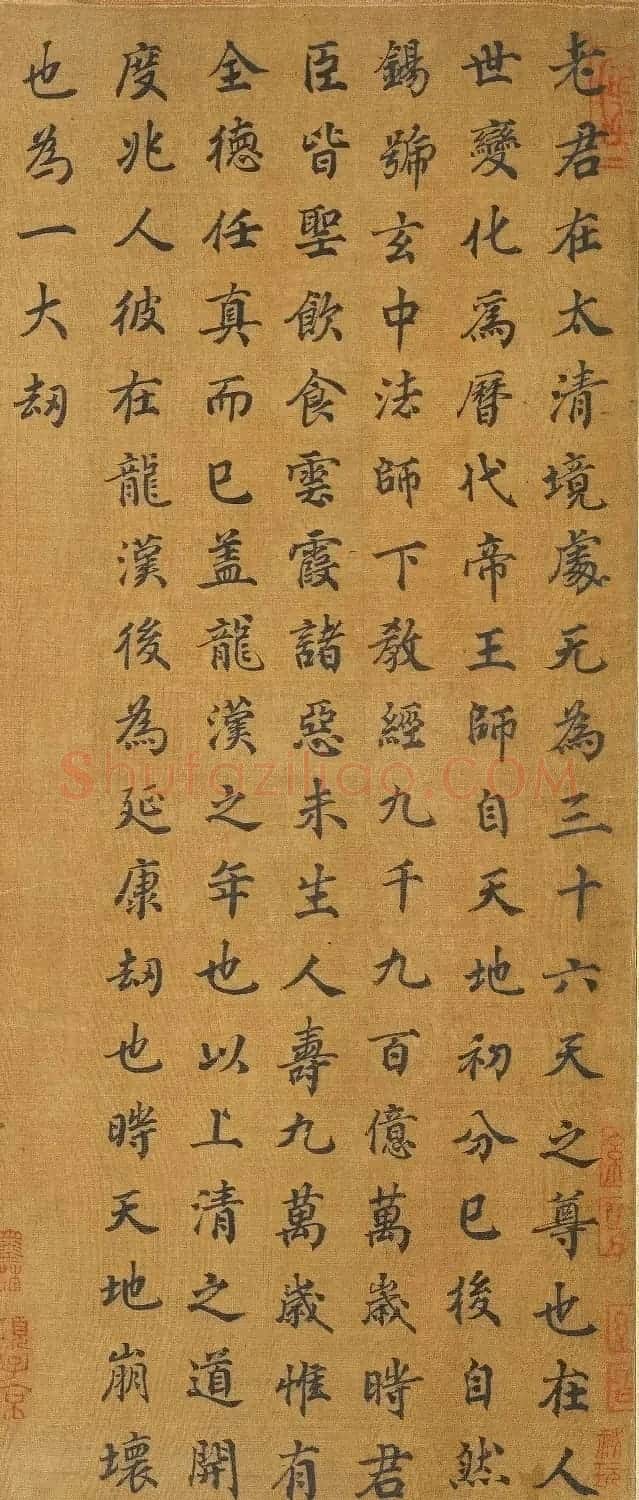 老君在太清境處无為三十六天之尊也在人
世變化爲曆代帝王師自天地初分已後自然
錫號玄中法師下教經九千九百億萬歲時君
臣皆聖飲食雲霞諸惡未生人壽九萬歲惟有
全德任真而已盖龍漢之年也以上清之道開
度兆人彼在龍漢後為延康劫也時天地崩壞
也為一大劫
Shufaziliao.COM